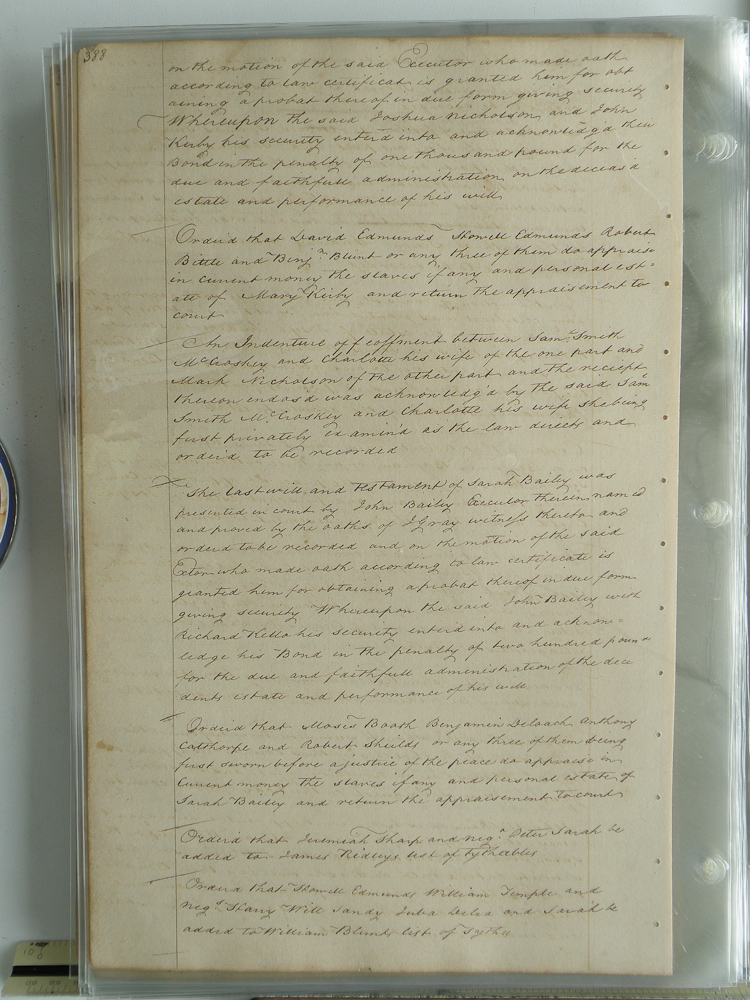 388
on the motion of the said Executor who made oath
according to law certificat is granted him for obt
aining a probat thereof in due form giving security
Whereupon the said Joshua Nicholson and John
Kirby his security enterd into and acknowledgd their
Bond in the penalty of one thousand pound for the
due and faithfull administration on the deceas'd
estate and performance of his will
Orderd that David Edmunds Howell Edmunds Robert
Bittle and Benjn Blunt or any three of them do appraise
in current money the slaves if any and personal est=
ate of Mary Kirby and return the appraisement to
court
An Indenture of feoffment between Saml Smith
McCroskey and Charlotte his wife of the one part and
Mark Nicholson of the other part and the receipt
thereon endosd was acknowledg'd by the said Sam
Smith McCroskey and Charlotte his wife she being
first privately examin'd as the law directs and
orderd to be recorded
The last will and testament of Sarah Bailey was
presented in court by John Bailey Executor therein named
and proved by the oaths of J Gray witness thereto and
orderd to be recorded and on the motion of the said
Exctor who made oath according to law certificate is
granted him for obtaining a probat thereof in due form
giving security Whereupon the said John Bailey with
Richard Kello his security enterd into and acknow=
ledge his Bond in the penalty of two hundred poun
for the due and faithfull administration of the dece
dents estate and performance of his will
Orderd that Moses Booth Benjamin Deloach Anthony
Calthorpe and Robert Shields or any three of them being
first sworn before a justice of the peace do appraise in
current money the slaves if any and personal estate of
Sarah Bailey and return the appraisement to court
Orderd that Jeremiah Sharp and negs Peter Sarah be
added to James Ridleys list of tytheables
Orderd that Howell Edmunds William Temple and
negs Harry Will Sandy Juba and Sarah be
added to William Blunts list of Tyths